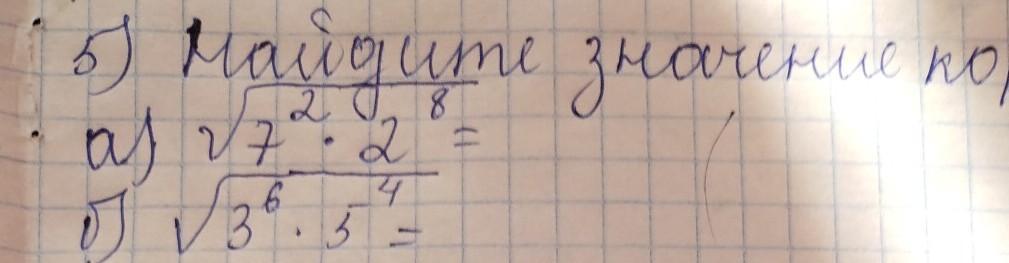 5) Найдите значение ко
а) √7² · 2⁸ =
б) √3⁶ · 5⁴ =